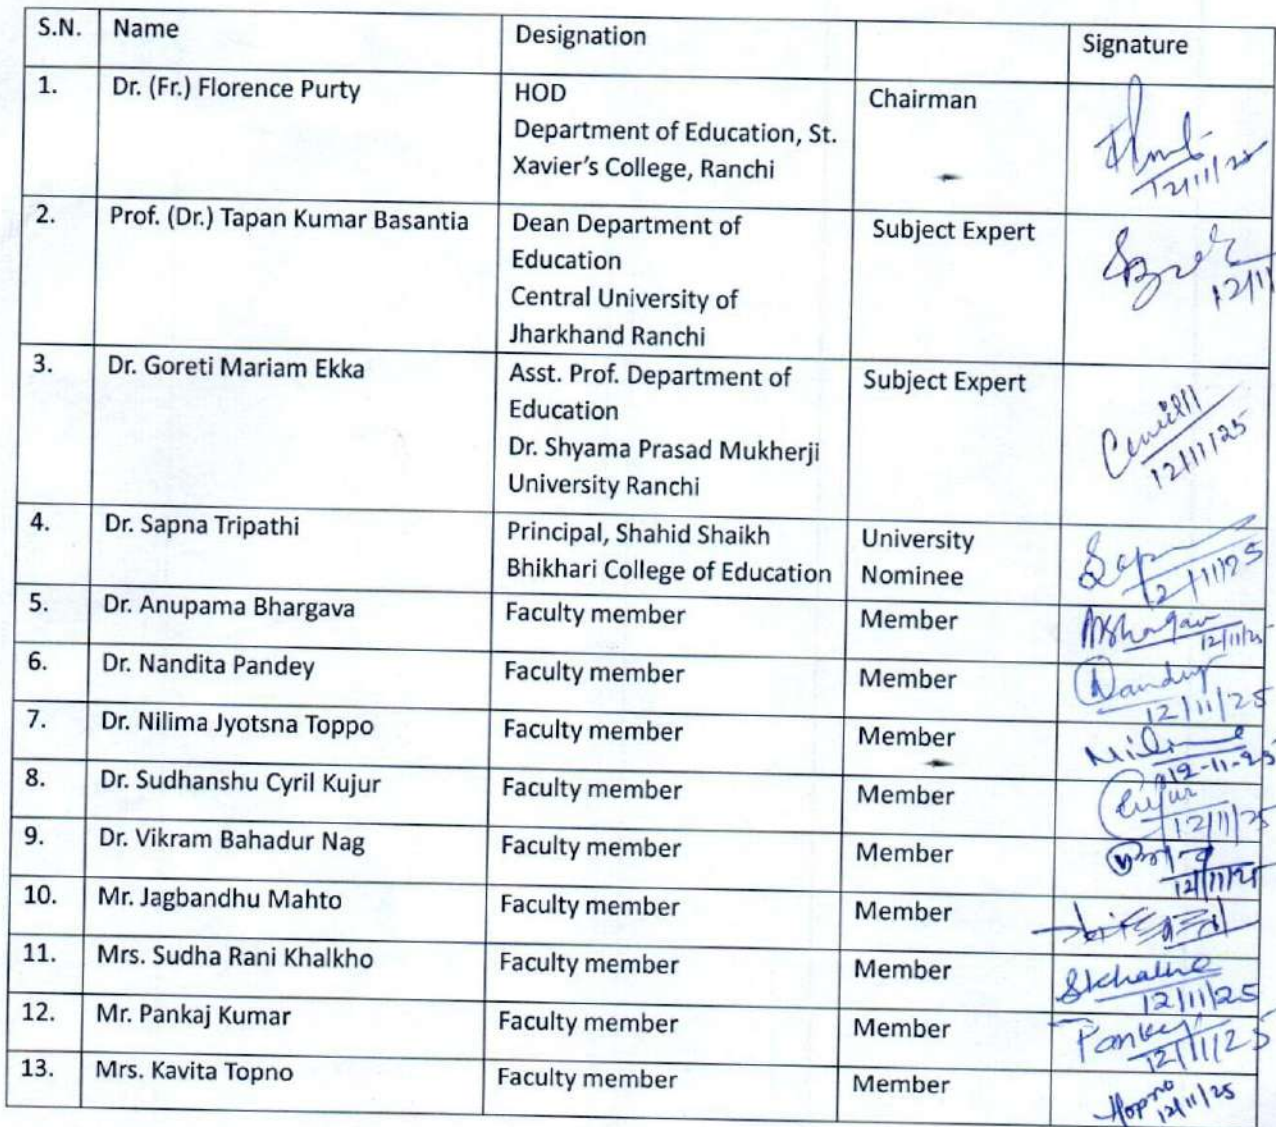 S.N. Name Designation Signature
1. Dr. (Fr.) Florence Purty HOD Chairman
Department of Education, St.
Xavier's College, Ranchi
12/11/25
2. Prof. (Dr.) Tapan Kumar Basantia Dean Department of Subject Expert
Education
Central University of
12/11
Jharkhand Ranchi
3. Dr. Goreti Mariam Ekka Asst. Prof. Department of Subject Expert
Education
Dr. Shyama Prasad Mukherji
University Ranchi
12/11/25
4. Dr. Sapna Tripathi Principal, Shahid Shaikh University
Bhikhari College of Education Nominee
12/11/25
5. Dr. Anupama Bhargava Faculty member Member
12/11/25
6. Dr. Nandita Pandey Faculty member Member
12/11/25
7. Dr. Nilima Jyotsna Toppo Faculty member Member
12-11-25
8. Dr. Sudhanshu Cyril Kujur Faculty member Member Kujur
12/11/25
9. Dr. Vikram Bahadur Nag Faculty member Member
12/11/25
10. Mr. Jagbandhu Mahto Faculty member Member
11. Mrs. Sudha Rani Khalkho Faculty member Member
12/11/25
12. Mr. Pankaj Kumar Faculty member Member Pankaj
12/11/25
13. Mrs. Kavita Topno Faculty member Member Topno
12/11/25